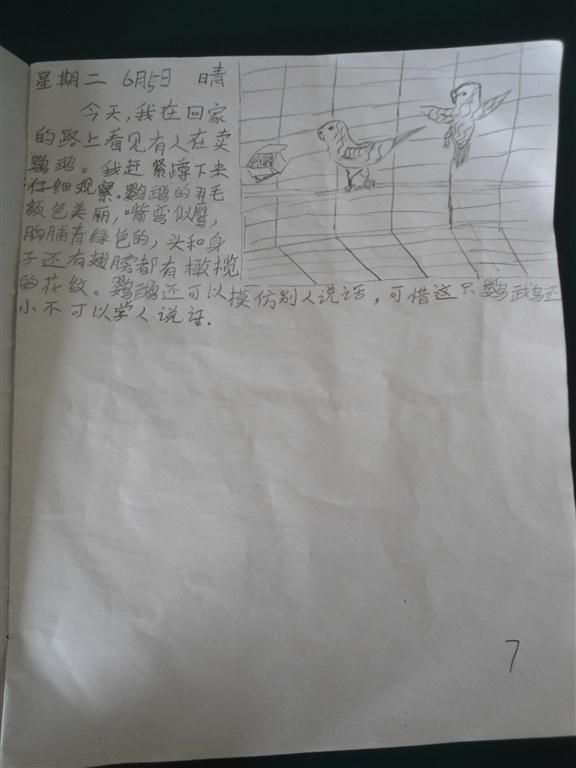 星期二 6月5日 晴
今天,我在回家
的路上看见有人在卖
鹦鹉。我赶紧蹲下来
仔细观察。鹦鹉的羽毛
颜色美丽,嘴弯似鹰,
胸脯有绿色的,头和身
子还有翅膀都有橄榄
的花纹。鹦鹉还可以模仿别人说话,可惜这只鹦鹉还
小不可以学人说话.
7